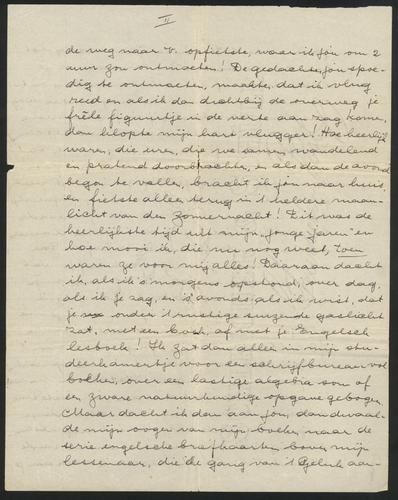 II
de weg naar V. opfietste, waar ik jou om 2
uur zou ontmoeten! De gedachte, jou spoe-
dig te ontmoeten, maakte, dat ik vlug
reed en als ik dan dichtbij de overweg je
frêle figuurtje in de verte aan zag komen,
dan klopte mijn hart vlugger! Hoe heerlijk
waren, die uren, die we samen, wandelend
en pratend doorbrachten, en als dan de avond
begon te vallen, bracht ik jou naar huis,
en fietste alleen terug in 't heldere maan-
licht van den Zomernacht! Dit was de
heerlijkste tijd uit mijn "jonge jaren" en
hoe mooi ik, die nu nog weet, toen
waren ze voor mij alles! Daaraan dacht
ik, als ik 's morgens opstond, over dag,
als ik je zag, en 's avonds als ik wist, dat
je onder 't rustige suizende gaslicht
zat, met een boek, of met je Engelsch
lesboek! Ik zat dan alleen in mijn stu-
deerkamertje voor een schrijfbureau vol
boeken, over een lastige algebra som of
en zware natuurkundige opgave gebogen.
Maar dacht ik dan aan jou, dan dwaal-
de mijn oogen van mijn boeken naar de
serie engelsche briefkaarten boven mijn
lessenaar, die de gang van 't Geluk aan-